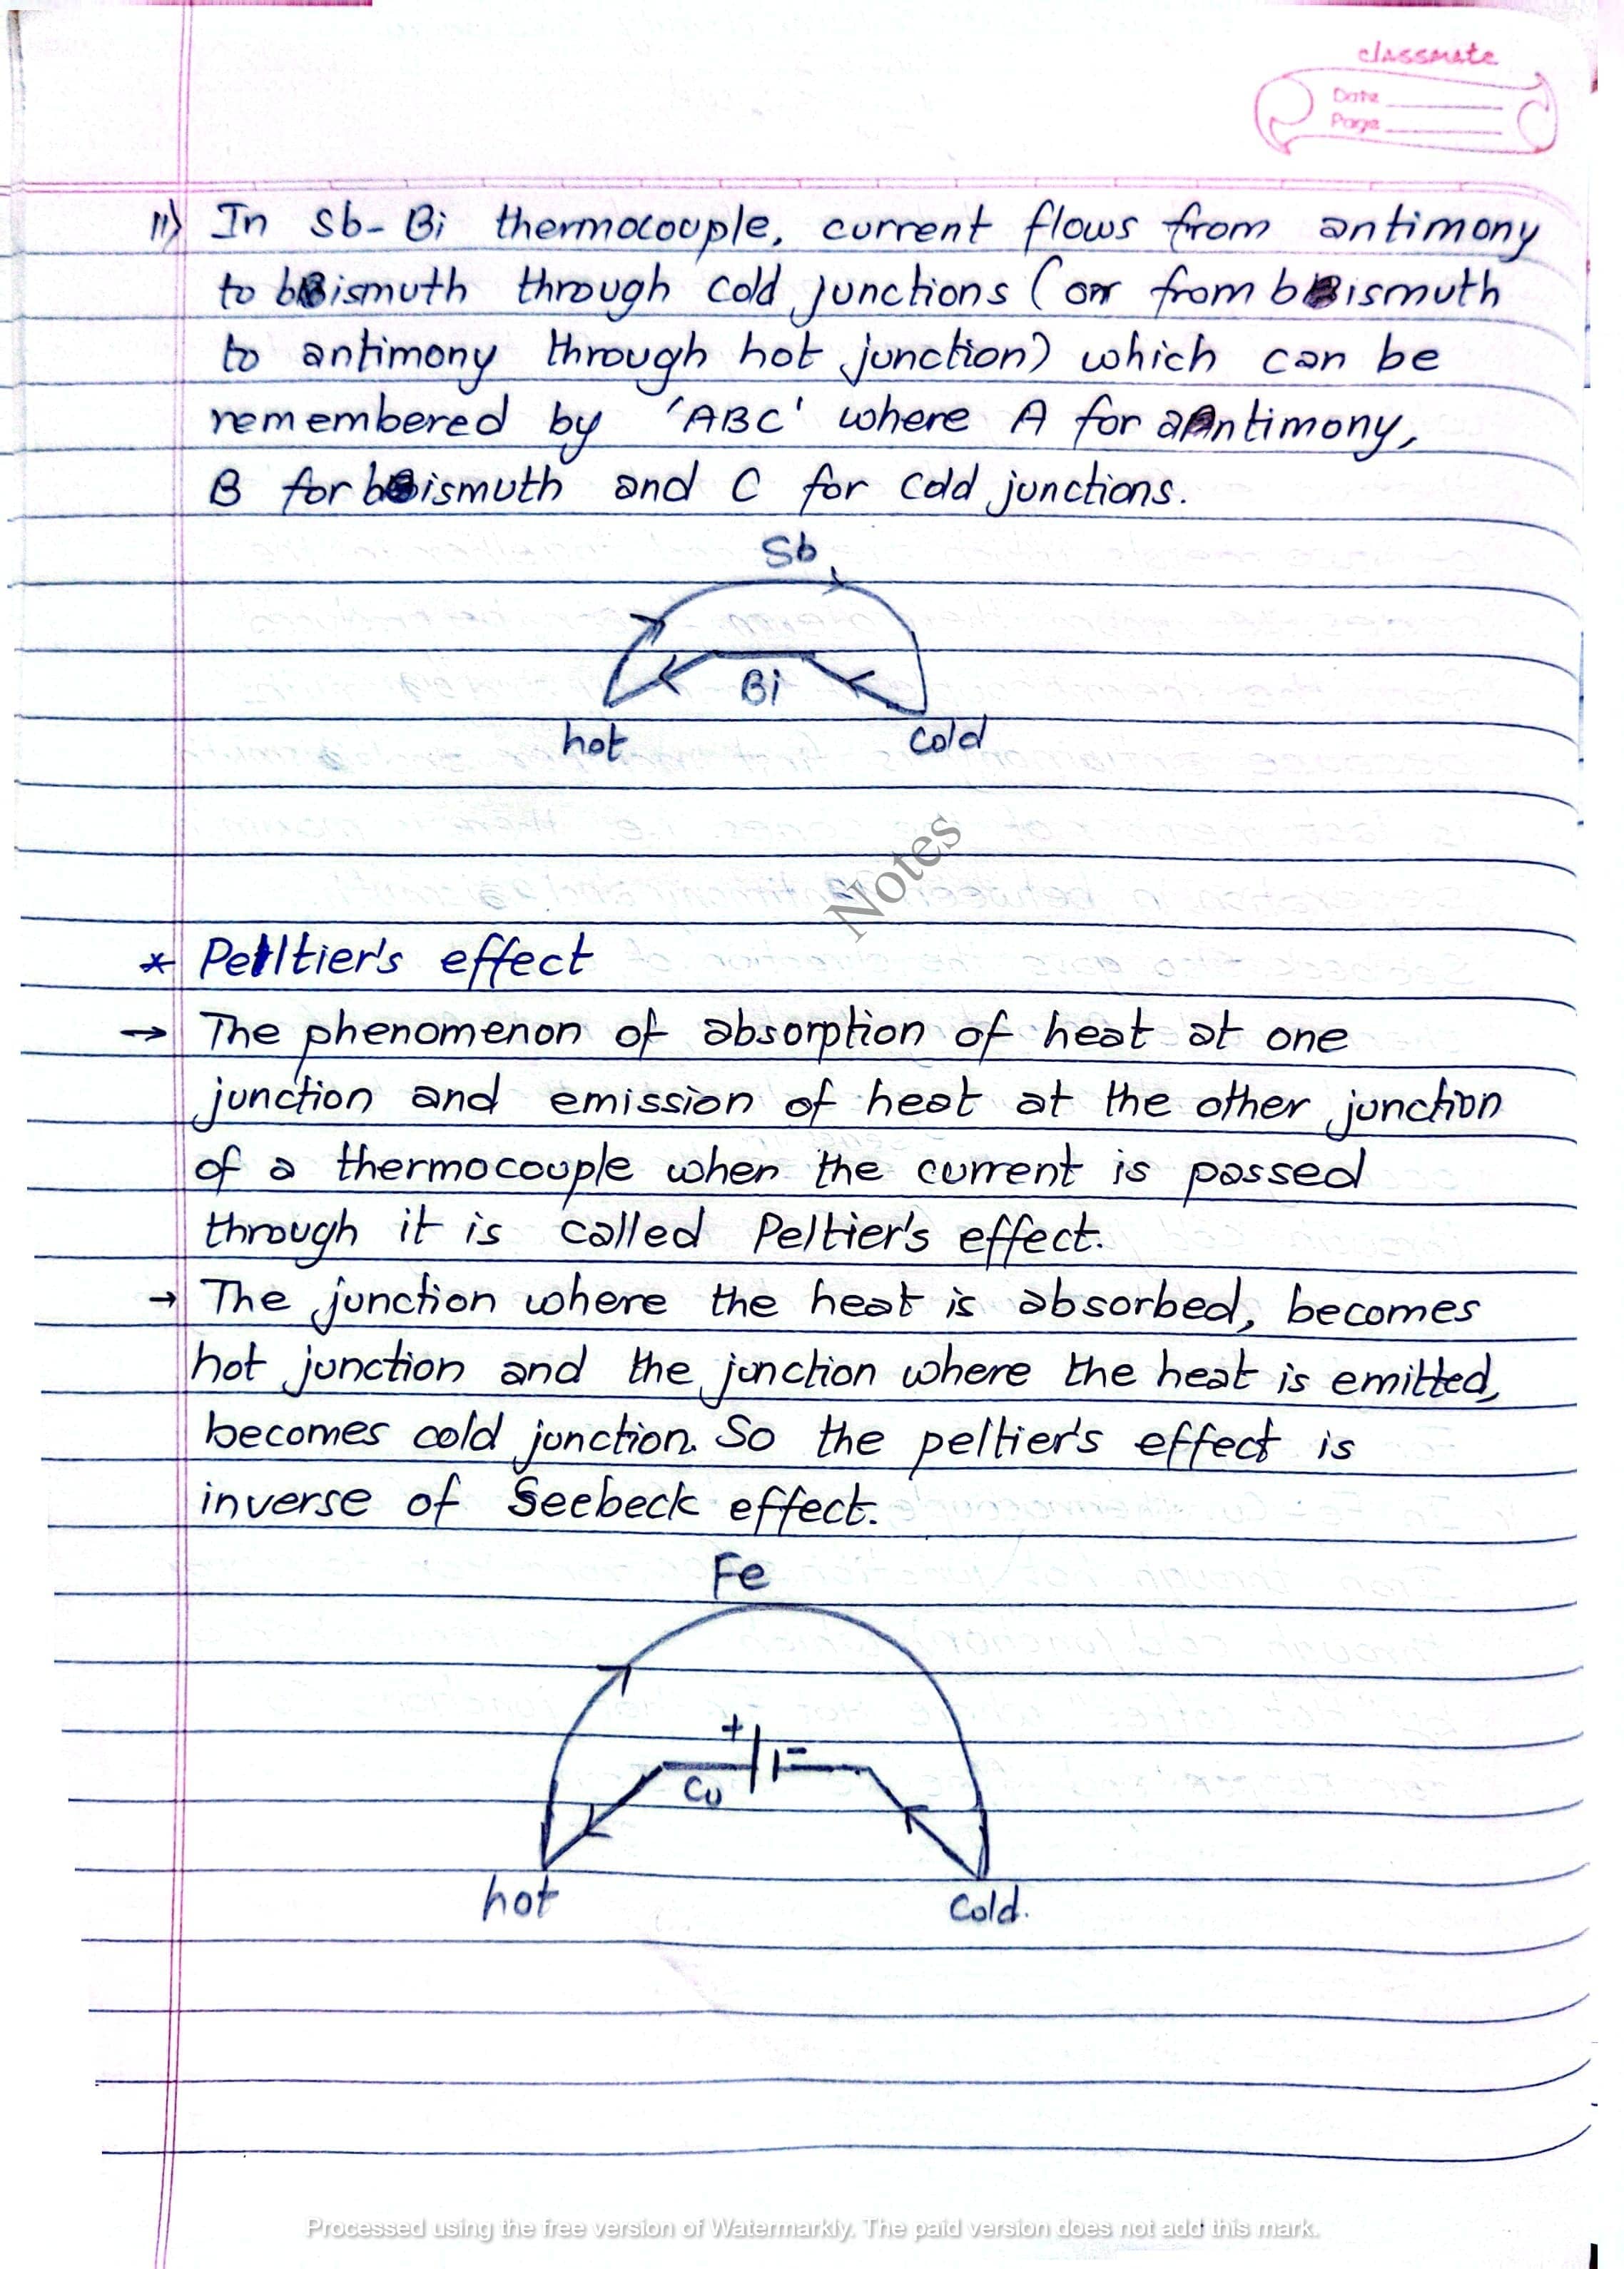 classmate
Date
Page
ii) In Sb-Bi thermocouple, current flows from antimony
to bismuth through cold junctions (or from bismuth
to antimony through hot junction) which can be
remembered by 'ABC' where A for antimony,
B for bismuth and C for cold junctions.
Sb
Bi
hot cold
Notes
* Peltier's effect
→ The phenomenon of absorption of heat at one
junction and emission of heat at the other junction
of a thermocouple when the current is passed
through it is called Peltier's effect.
→ The junction where the heat is absorbed, becomes
hot junction and the junction where the heat is emitted,
becomes cold junction. So the peltier's effect is
inverse of Seebeck effect.
Fe
+ -
Cu
hot cold.
Processed using the free version of Watermarkly. The paid version does not add this mark.